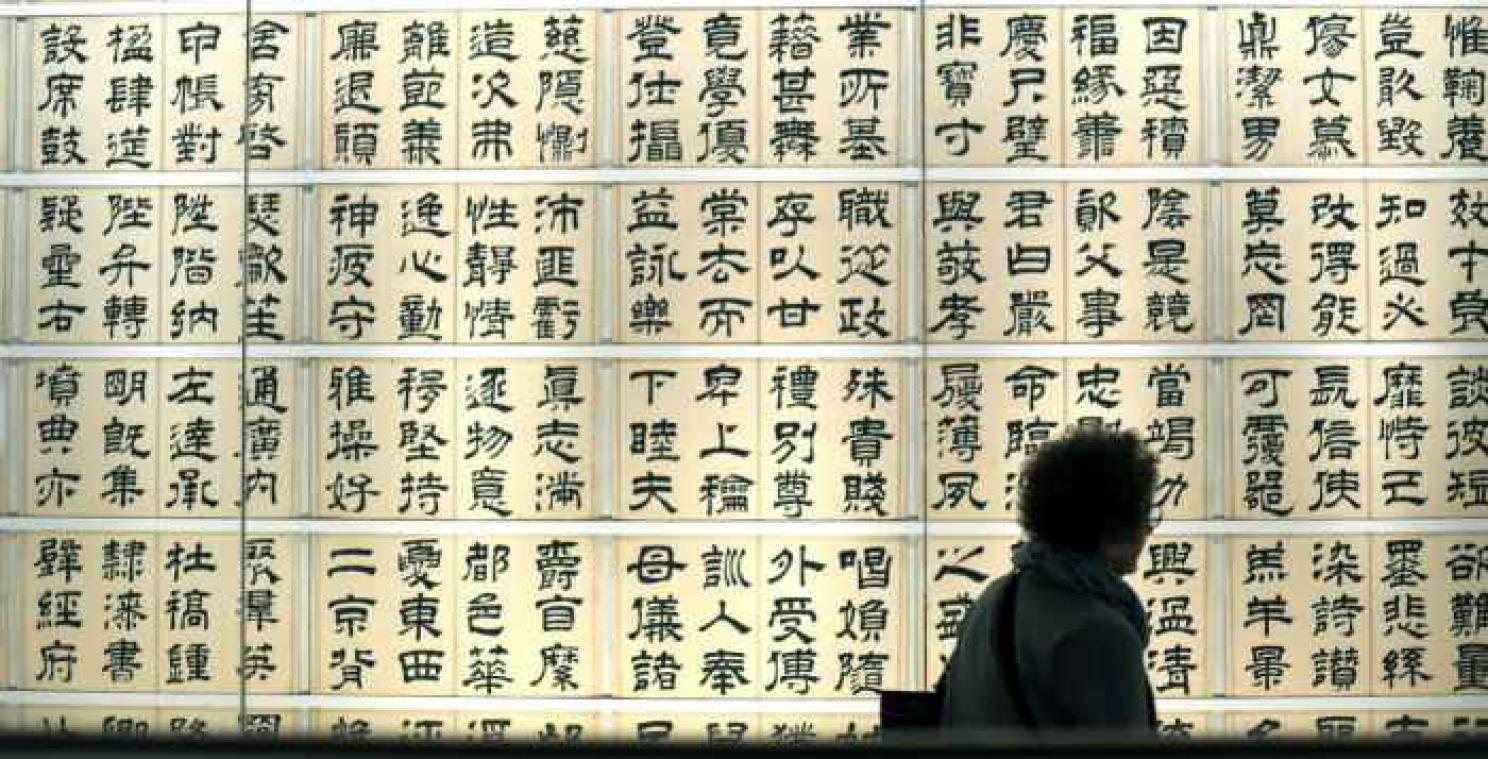 惟鞠養
豈敢毀
傷女慕
貞潔男
效才良
知過必
改得能
莫忘罔
談彼短
靡恃己
長信使
可覆器
欲難量
墨悲絲
染詩讚
羔羊景
因惡積
福緣善
慶尺璧
非寶寸
陰是競
資父事
君曰嚴
與敬孝
當竭力
忠則
命臨
履薄夙
興溫清
業所基
籍甚無
竟學優
登仕攝
職從政
存以甘
棠去而
益詠樂
殊貴賤
禮別尊
卑上和
下睦夫
唱婦隨
外受傅
訓人奉
母儀諸
慈隱惻
造次弗
離節義
廉退顛
沛匪虧
性靜情
逸心動
神疲守
真志滿
逐物意
移堅持
雅操好
爵自縻
都邑華
夏東西
二京背
舍旁啓
甲帳對
楹肆筵
設席鼓
瑟歙笙
陞階納
陛弁轉
疑星右
通廣內
左達承
明既集
墳典亦
聚群英
杜稿鍾
隸漆書
壁經府